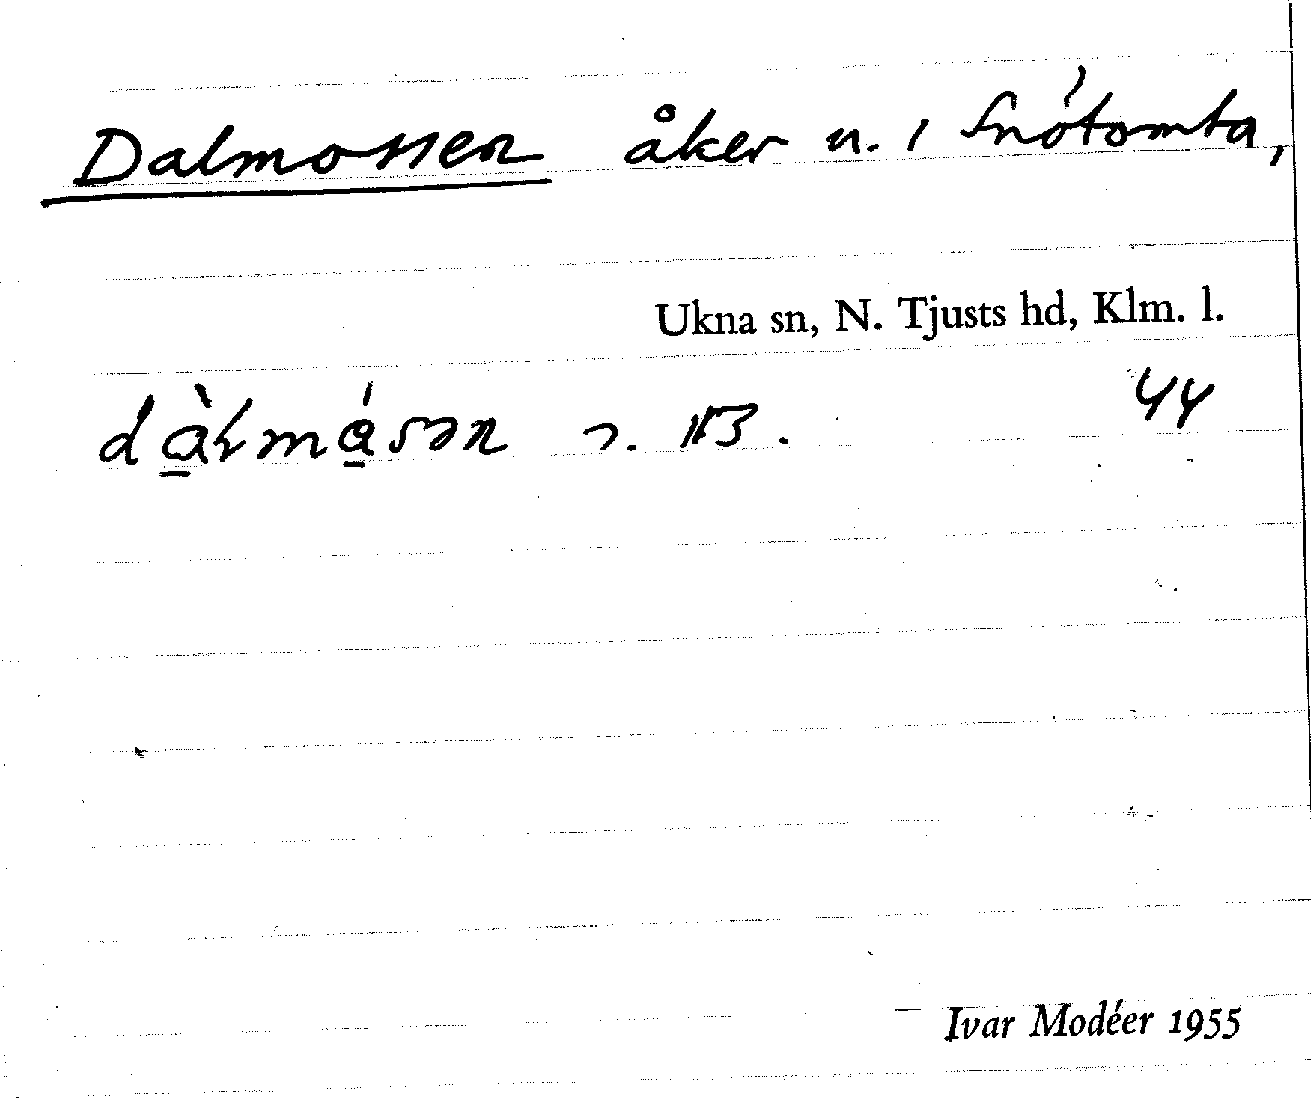 Dalmossen åker n. i Snótomta,
Ukna sn, N. Tjusts hd, Klm. l.
44
Ivar Modéer 1955